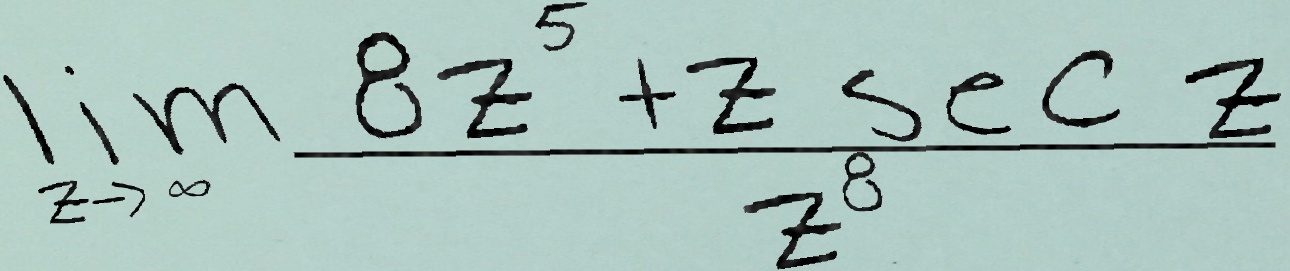 lim z→∞ 8z⁵ + z sec z / z⁸